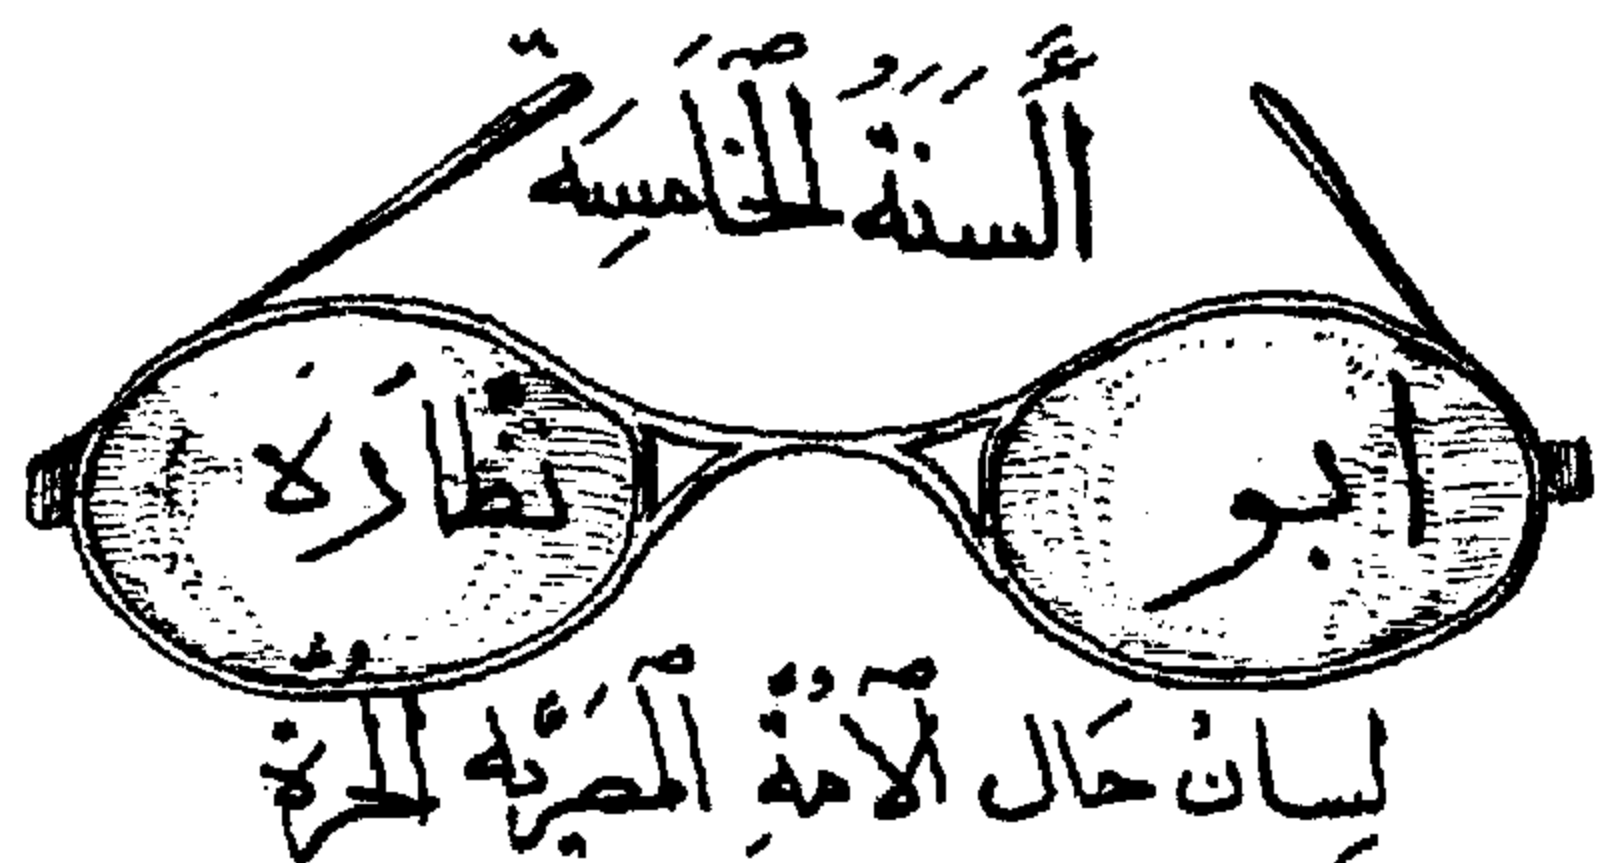 اَلسَّنَةُ ٱلْخَامِسَه
ابو نظارة
لِسانُ حَال ٱلأمةِ ٱلمصريَّه ٱلحرة